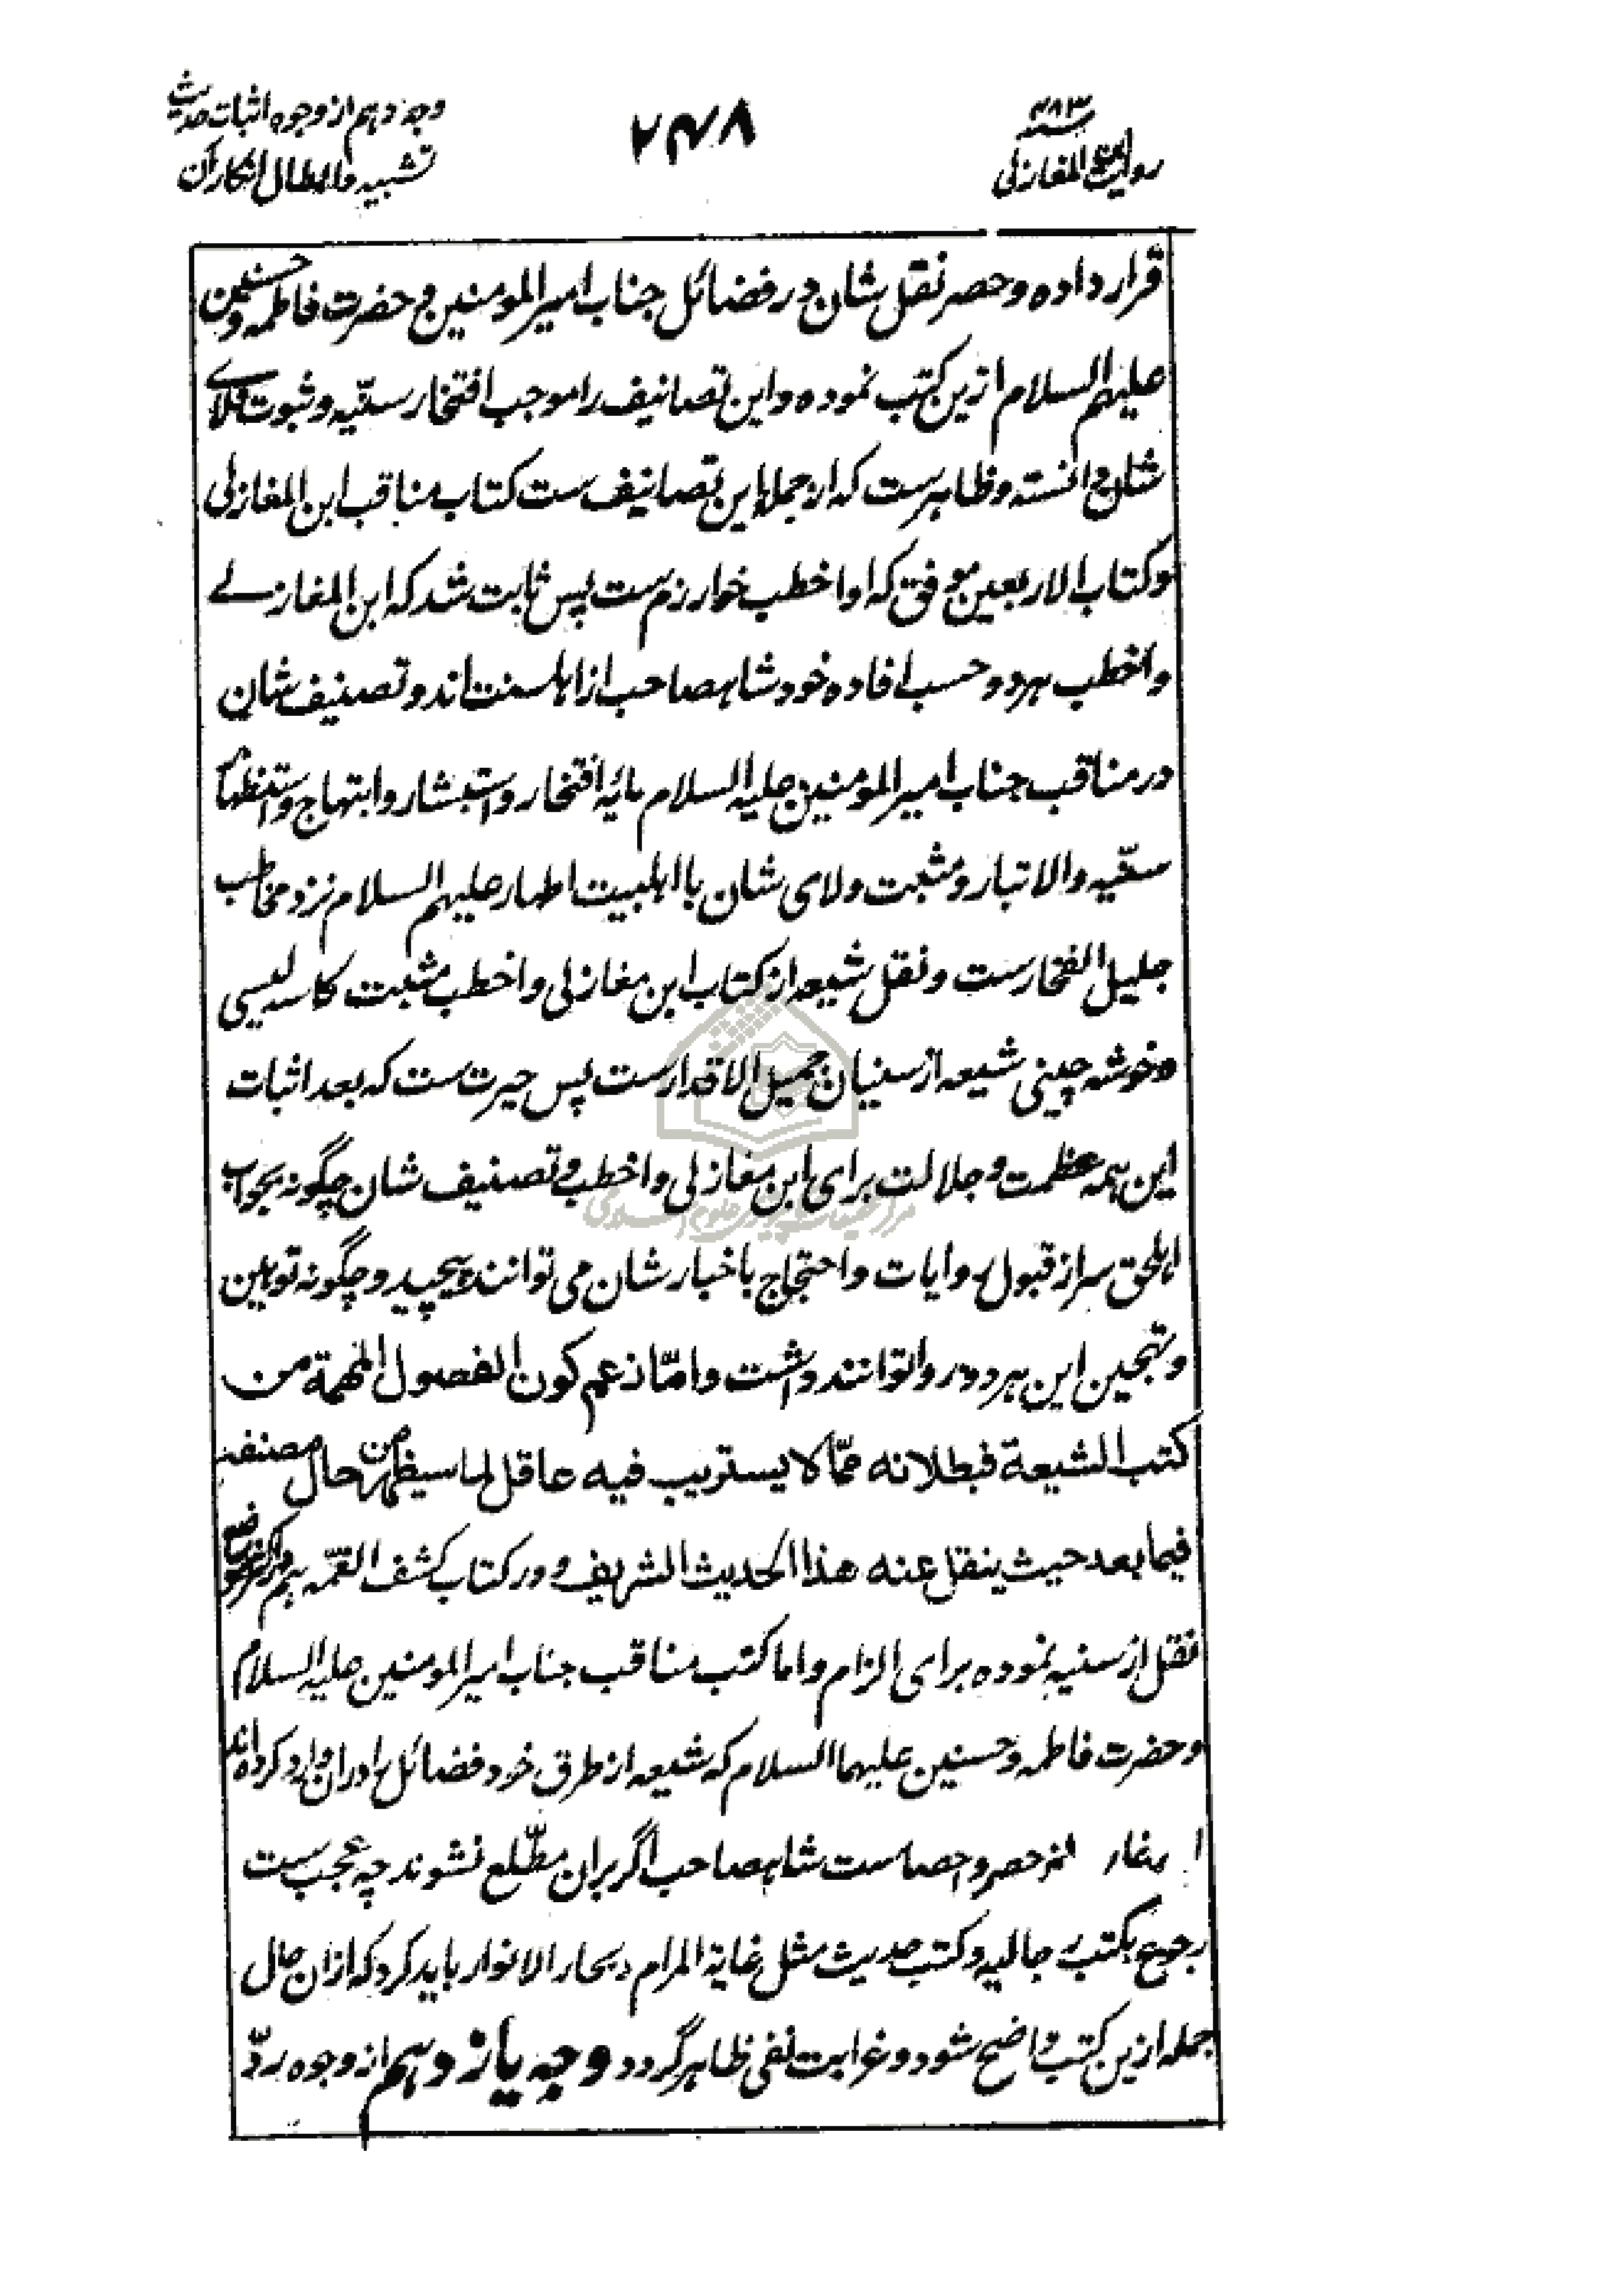 سنه ۴۸۳
روایت ابن المغازلی
۲۴۸
وجه دهم از وجوه اثبات حدیث
تشبیه و ابطال انکار آن
قرار داده و حصر نقل شان در فضائل جناب امیر المومنین و حضرت فاطمه و حسنین
علیهم السلام ازین کتب نموده و این تصانیف را موجب افتخار سنّیه و ثبوت ولای
شان دانسته و ظاهرست که از جمله این تصانیف ست کتاب مناقب ابن المغازلی
و کتاب الاربعین موفق که او اخطب خوارزم ست پس ثابت شد که ابن المغازلے
و اخطب هر دو حسب افاده خود شاهصاحب از اهلسنت اند و تصنیف شان
در مناقب جناب امیر المؤمنین علیه السلام مایۀ افتخار و استبشار و ابتهاج و استظهار
سنّیه والاتبار و مثبت ولای شان با اهلبیت اطهار علیهم السلام نزد مخاطب
جلیل الفخارست و نقل شیعه از کتاب ابن مغازلی و اخطب مثبت کاسه لیسی
و خوشه چینی شیعه از سنیان جمیل الاقدارست پس حیرت ست که بعد اثبات
این همه عظمت و جلالت برای ابن مغازلی و اخطب و تصنیف شان چگونه بجواب
اهلحق سر از قبول روایات و احتجاج باخبار شان می توانند پیچید و چگونه توهین
و تهجین این هر دو روا توانند داشت و امّا زعم کون الفصول المهمة من
کتب الشیعة فبطلانه ممّا لا یستریب فیه عاقل لما سیظهر من حال مصنفه
فیما بعد حیث ینقل عنه هذا الحدیث الشریف و در کتاب کشف الغمّه هم
نقل از سنیه نموده برای الزام و اما کتب مناقب جناب امیر المومنین علیه السلام
و حضرت فاطمه و حسنین علیهما السلام که شیعه از طرق خود فضائل را دران وارد کرده اند
از حصر و احصاست شاهصاحب اگر بران مطّلع نشوند چه عجب ست
رجوع بکتب رجالیه و کتب حدیث مثل غایة المرام و بحار الانوار باید کرد که ازان حال
جمله ازین کتب واضح شود و غرابت نفی ظاهر گردد وجه یازدهم از وجوه ردّ